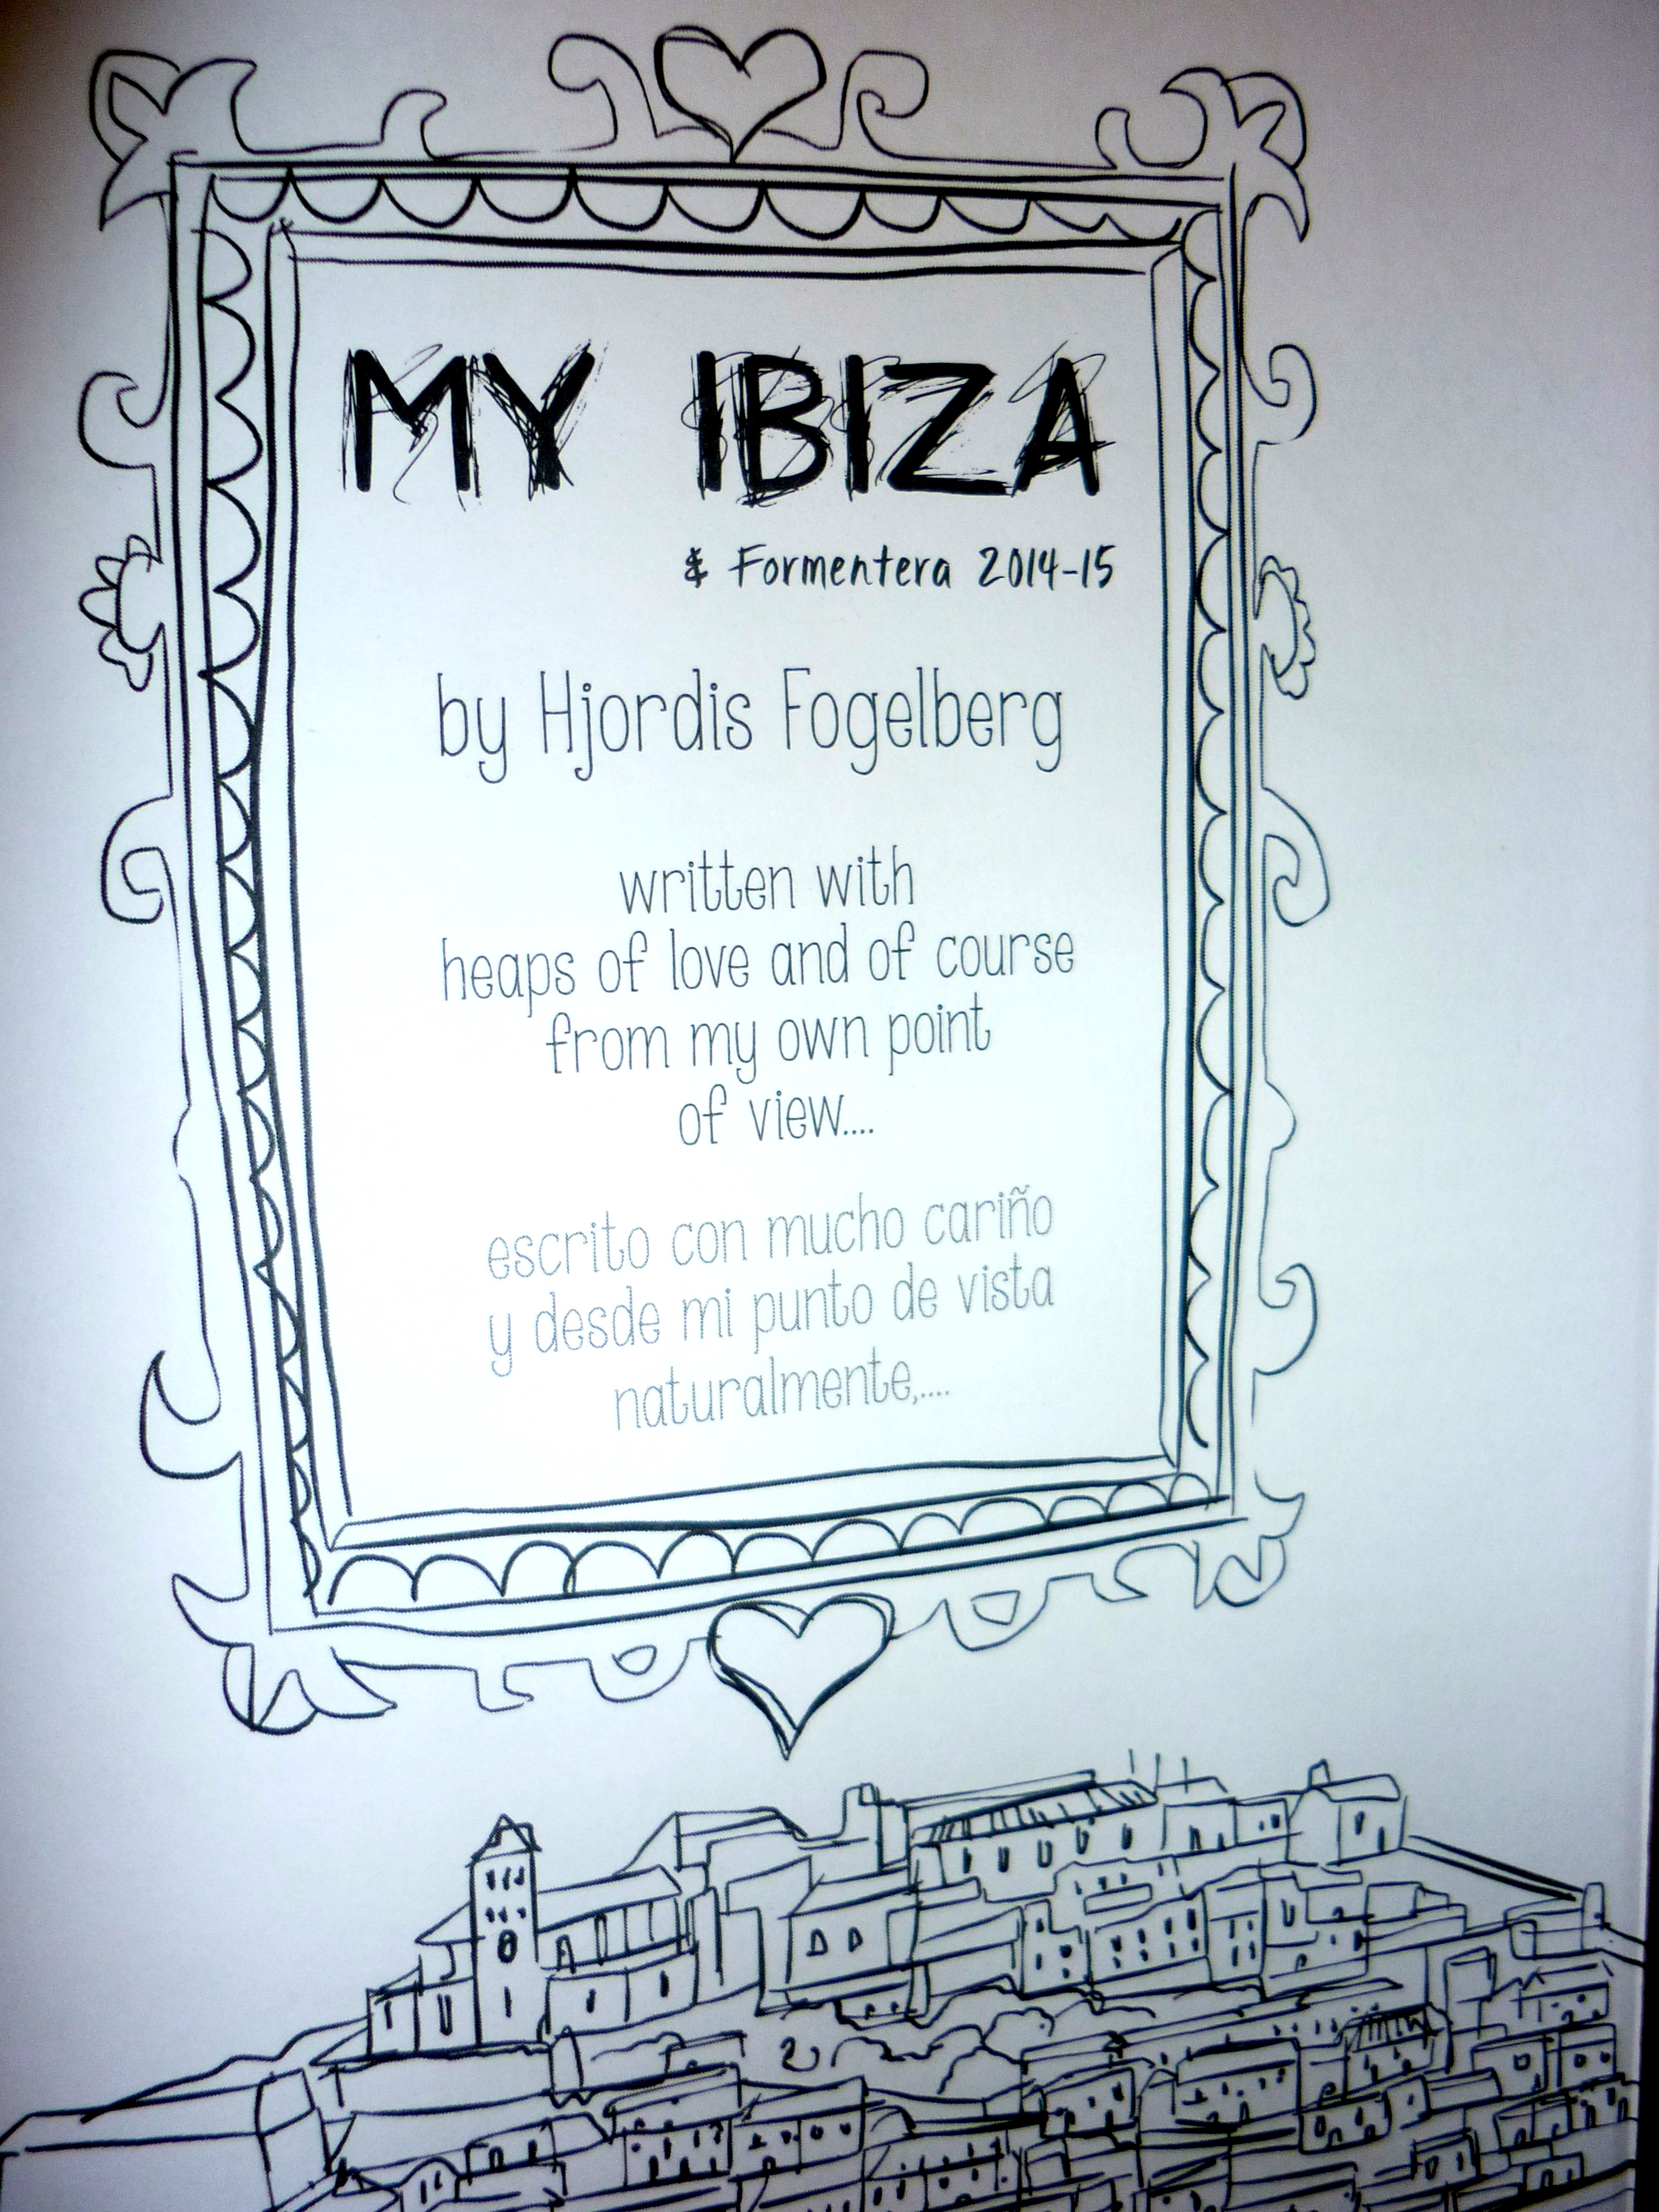 MY IBIZA
& Formentera 2014-15
by Hjordis Fogelberg
written with
heaps of love and of course
from my own point
of view....
escrito con mucho cariño
y desde mi punto de vista
naturalmente,....